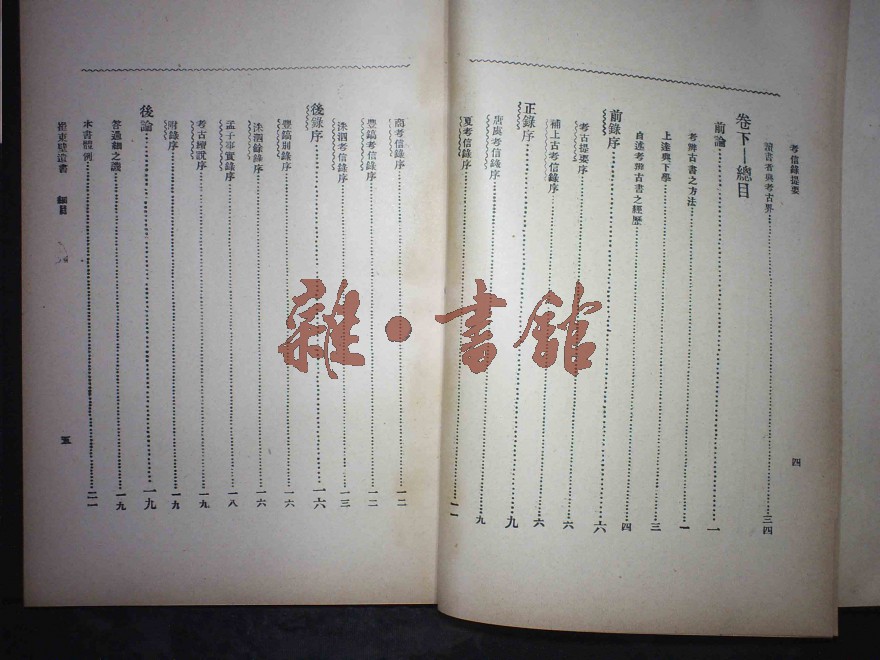 考信錄提要
四
讀書者與考古界 三四
卷下—總目
前論 一
考辨古書之方法 一
上達與下學 三
自述考辨古書之經歷 四
前錄序 六
考古提要序 六
補上古考信錄序 六
正錄序 九
唐虞考信錄序 九
夏考信錄序 一一
商考信錄序 一二
豐鎬考信錄序 一二
洙泗考信錄序 一三
後錄序 一六
豐鎬別錄序 一六
洙泗餘錄序 一六
孟子事實錄序 一八
考古續說序 一九
附錄序 一九
後論 一九
答過細之譏 一九
本書體例 二一
崔東壁遺書 細目
五
雜·書館